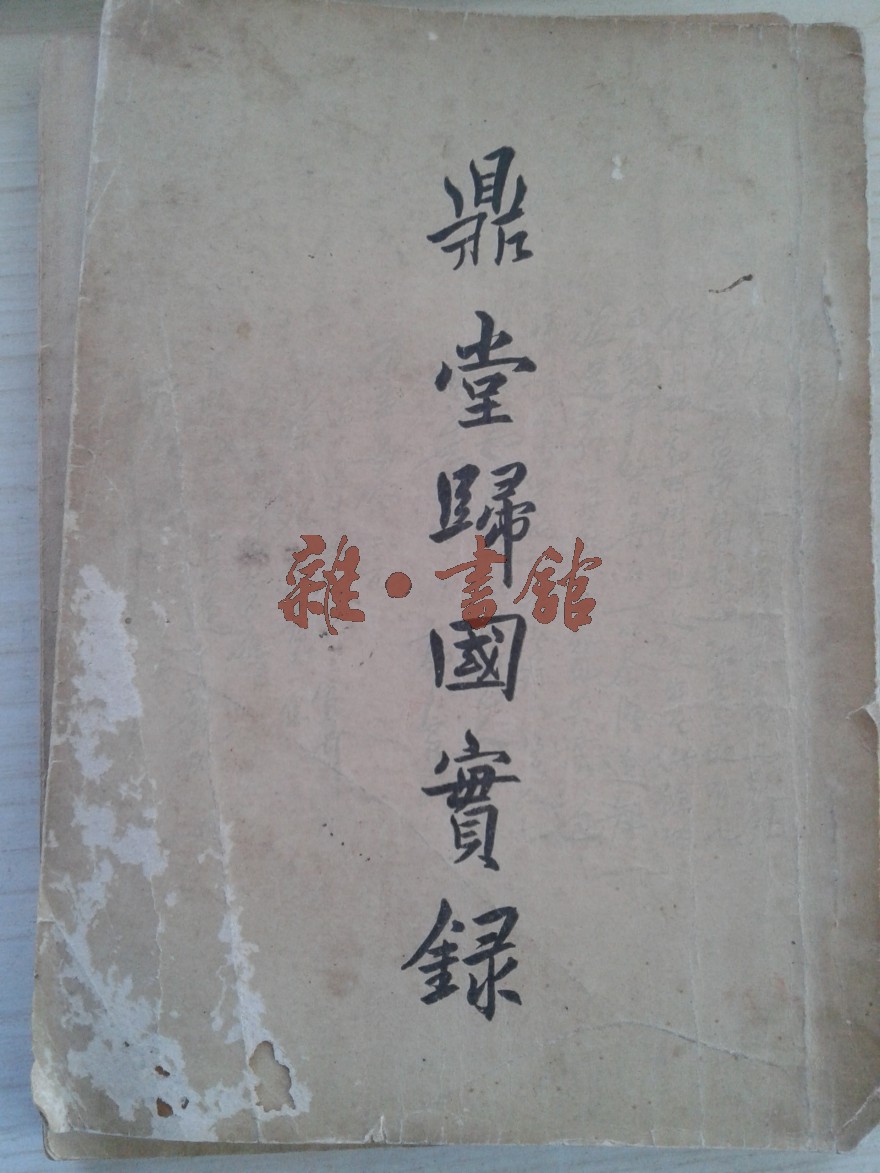 鼎堂歸國實録
雜·書館